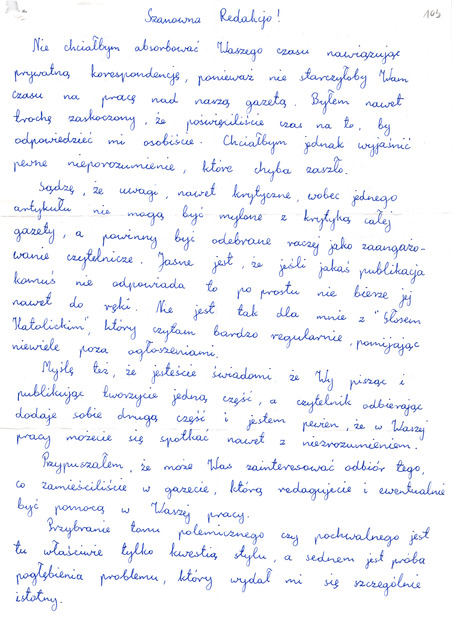 Szanowna Redakcjo!
103
Nie chciałbym absorbować Waszego czasu nawiązując
prywatną korespondencję, ponieważ nie starczyłoby Wam
czasu na pracę nad naszą gazetą. Byłem nawet
trochę zaskoczony, że poświęciliście czas na to, by
odpowiedzieć mi osobiście. Chciałbym jednak wyjaśnić
pewne nieporozumienie, które chyba zaszło.
Sądzę, że uwagi, nawet krytyczne, wobec jednego
artykułu nie mogą być mylone z krytyką całej
gazety, a powinny być odebrane raczej jako zaangażo-
wanie czytelnicze. Jasne jest, że jeśli jakaś publikacja
komuś nie odpowiada to po prostu nie bierze jej
nawet do ręki. Nie jest tak dla mnie z "Głosem
Katolickim", który czytam bardzo regularnie, pomijając
niewiele poza ogłoszeniami.
Myślę też, że jesteście świadomi że Wy pisząc i
publikując tworzycie jedną część, a czytelnik odbierając
dodaje sobie drugą część i jestem pewien, że w Waszej
pracy możecie się spotkać nawet z niezrozumieniem.
Przypuszałem, że może Was zainteresować odbiór tego,
co zamieściliście w gazecie, którą redagujecie i ewentualnie
być pomocą w Waszej pracy.
Przybranie tonu polemicznego czy pochwalnego jest
tu właściwie tylko kwestią stylu, a sednem jest próba
pogłębienia problemu, który wydał mi się szczególnie
istotny.